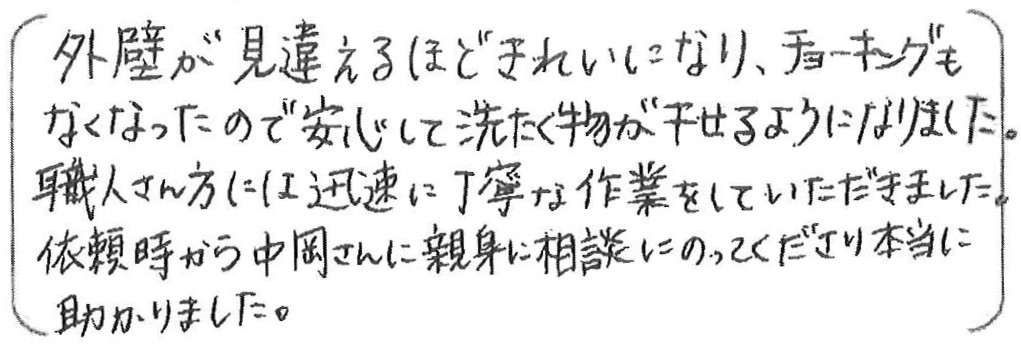 外壁が見違えるほどきれいになり、チョーキングも
なくなったので安心して洗たく物が干せるようになりました。
職人さん方には迅速に丁寧な作業をしていただきました。
依頼時から中岡さんに親身に相談にのってくださり本当に
助かりました。